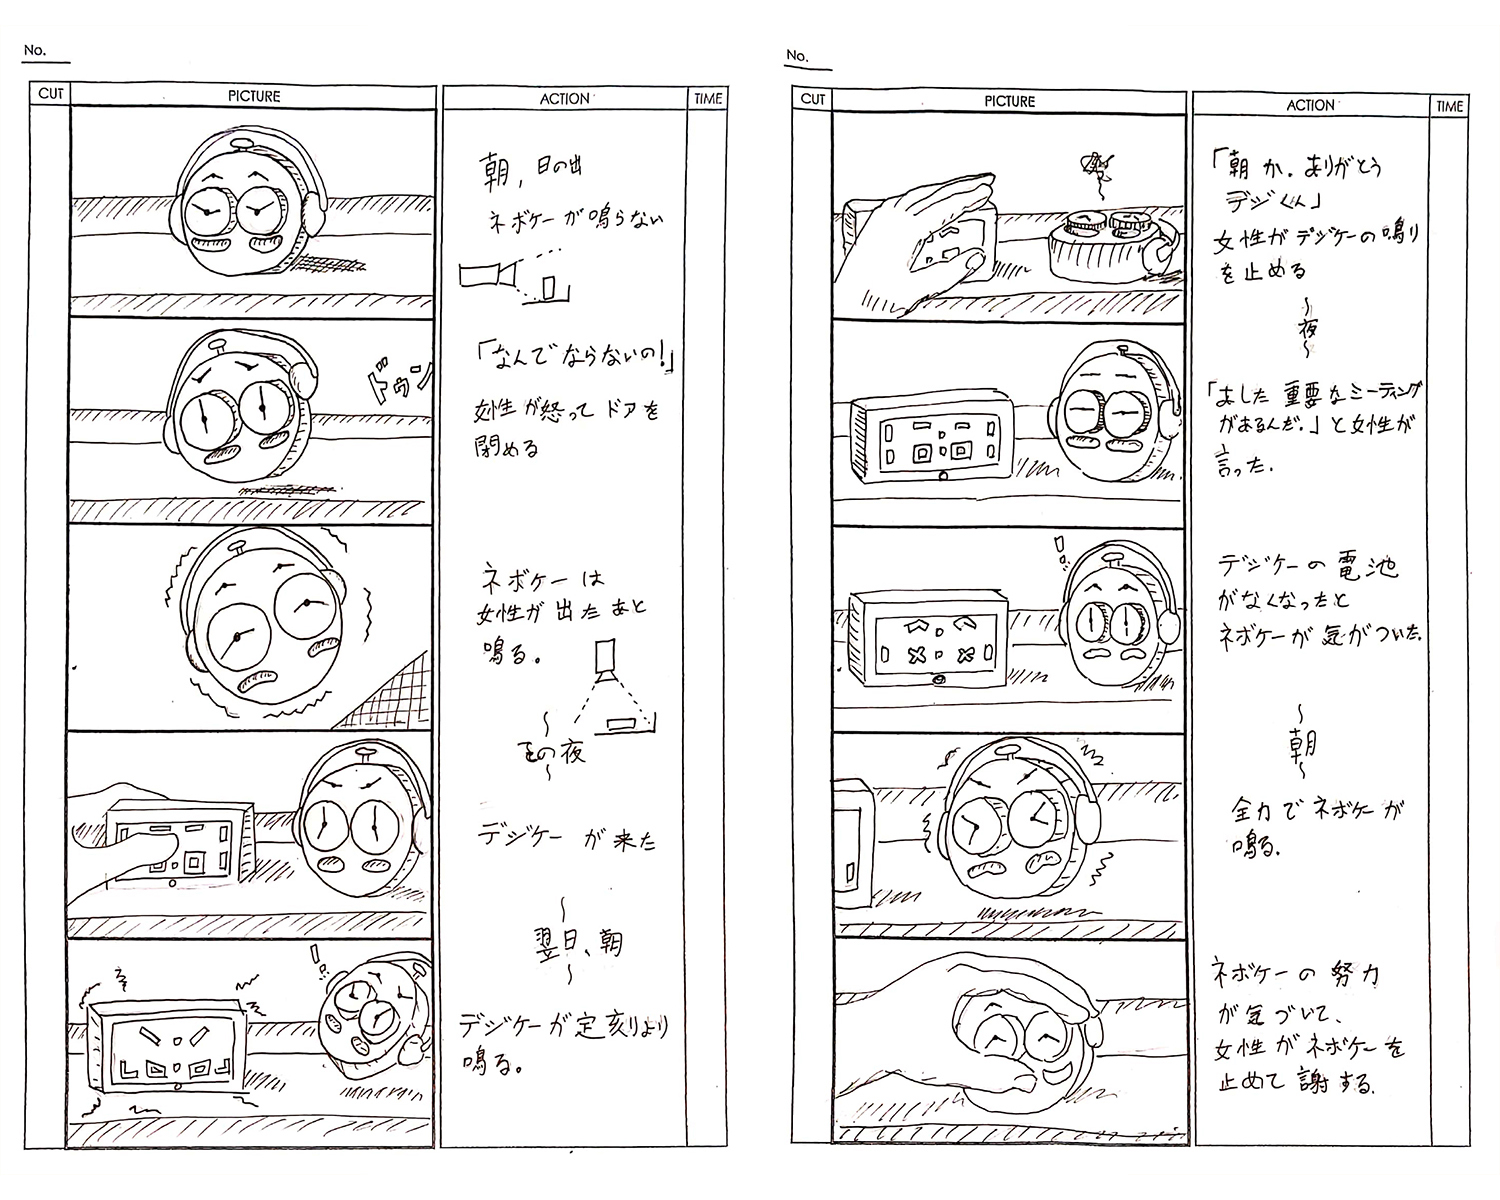 No.
CUT PICTURE ACTION TIME
朝, 日の出
ネボケーが鳴らない
「なんでならないの!」
ドゥン
女性が怒ってドアを
閉める
ネボケーは
女性が出たあと
鳴る。
〜
その夜
〜
デジケーが来た
〜
翌日、朝
〜
!
デジケーが定刻より
鳴る。
No.
CUT PICTURE ACTION TIME
「朝か。ありがとう
デジくん」
女性がデジケーの鳴り
を止める
〜
夜
〜
「ました重要なミーティング
があるんだ。」と女性が
言った.
!
デジケーの電池
がなくなったと
ネボケーが気がついた.
〜
朝
〜
全力でネボケーが
鳴る.
ネボケーの努力
が気づいて、
女性がネボケーを
止めて謝する.